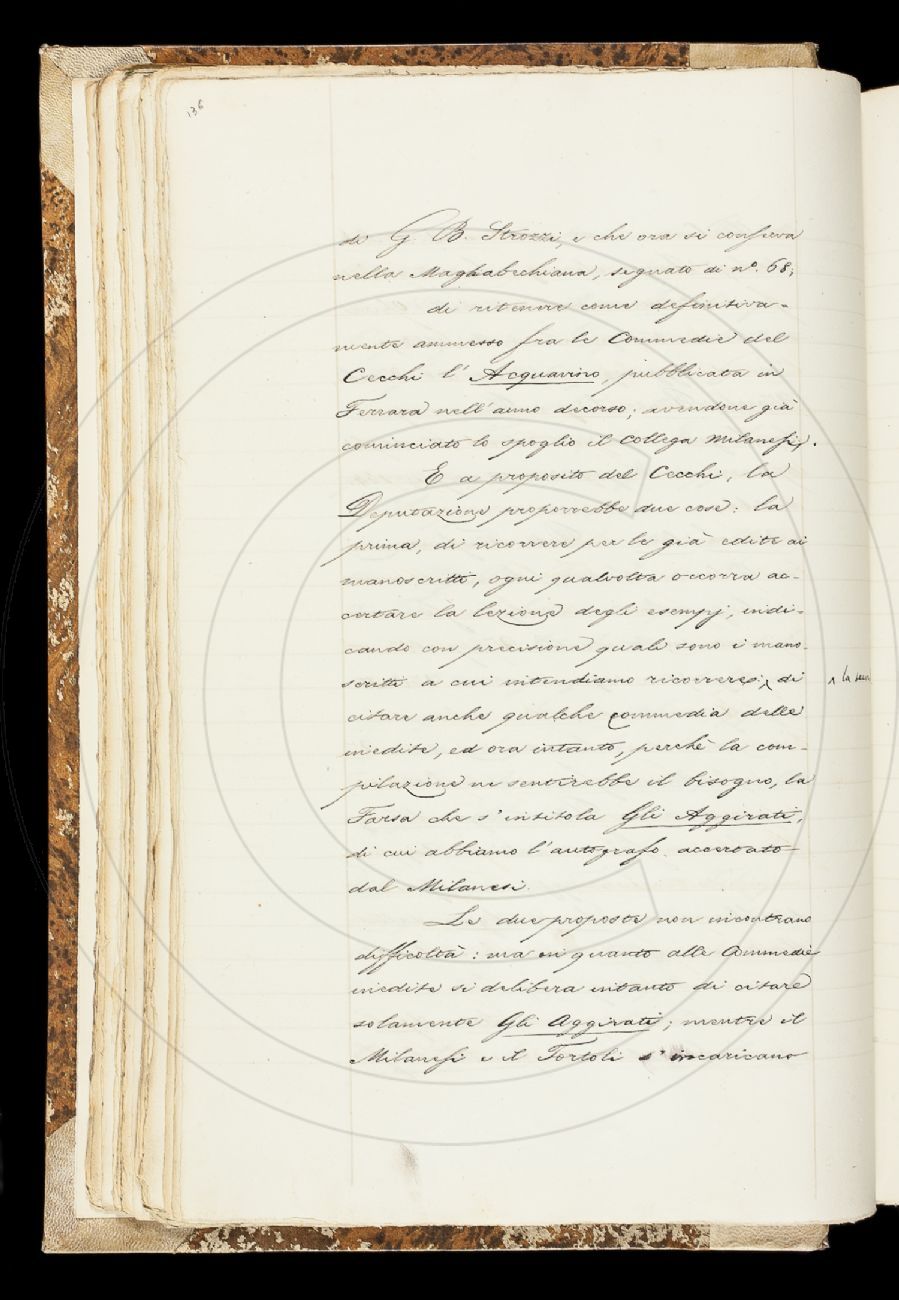 136
di G. B. Strozzi, e che ora si conserva
nella Magliabechiana, segnato di n°. 68;
di ritenere come definitiva-
mente ammesso fra le Commedie del
Cecchi l' Acquavino, pubblicata in
Ferrara nell' anno decorso; avendone già
cominciato lo spoglio il collega Milanesi.
E a proposito del Cecchi, la
Deputazione proporrebbe due cose: la
prima, di ricorrere per le già edite ai
manoscritti, ogni qualvolta occorra ac-
certare la lezione degli esempj, indi-
cando con precisione quali sono i mano-
scritti a cui intendiamo ricorrere; di
^ la
citare anche qualche commedia delle
inedite, ed ora intanto, perchè la com-
pilazione ne sentirebbe il bisogno, la
Farsa che s' intitola Gli Aggirati,
di cui abbiamo l' autografo accertato
dal Milanesi.
Le due proposte non incontrano
difficoltà: ma in quanto alle Commedie
inedite si delibera intanto di citare
solamente Gli Aggirati; mentre il
Milanesi e il Tortoli s' incaricano